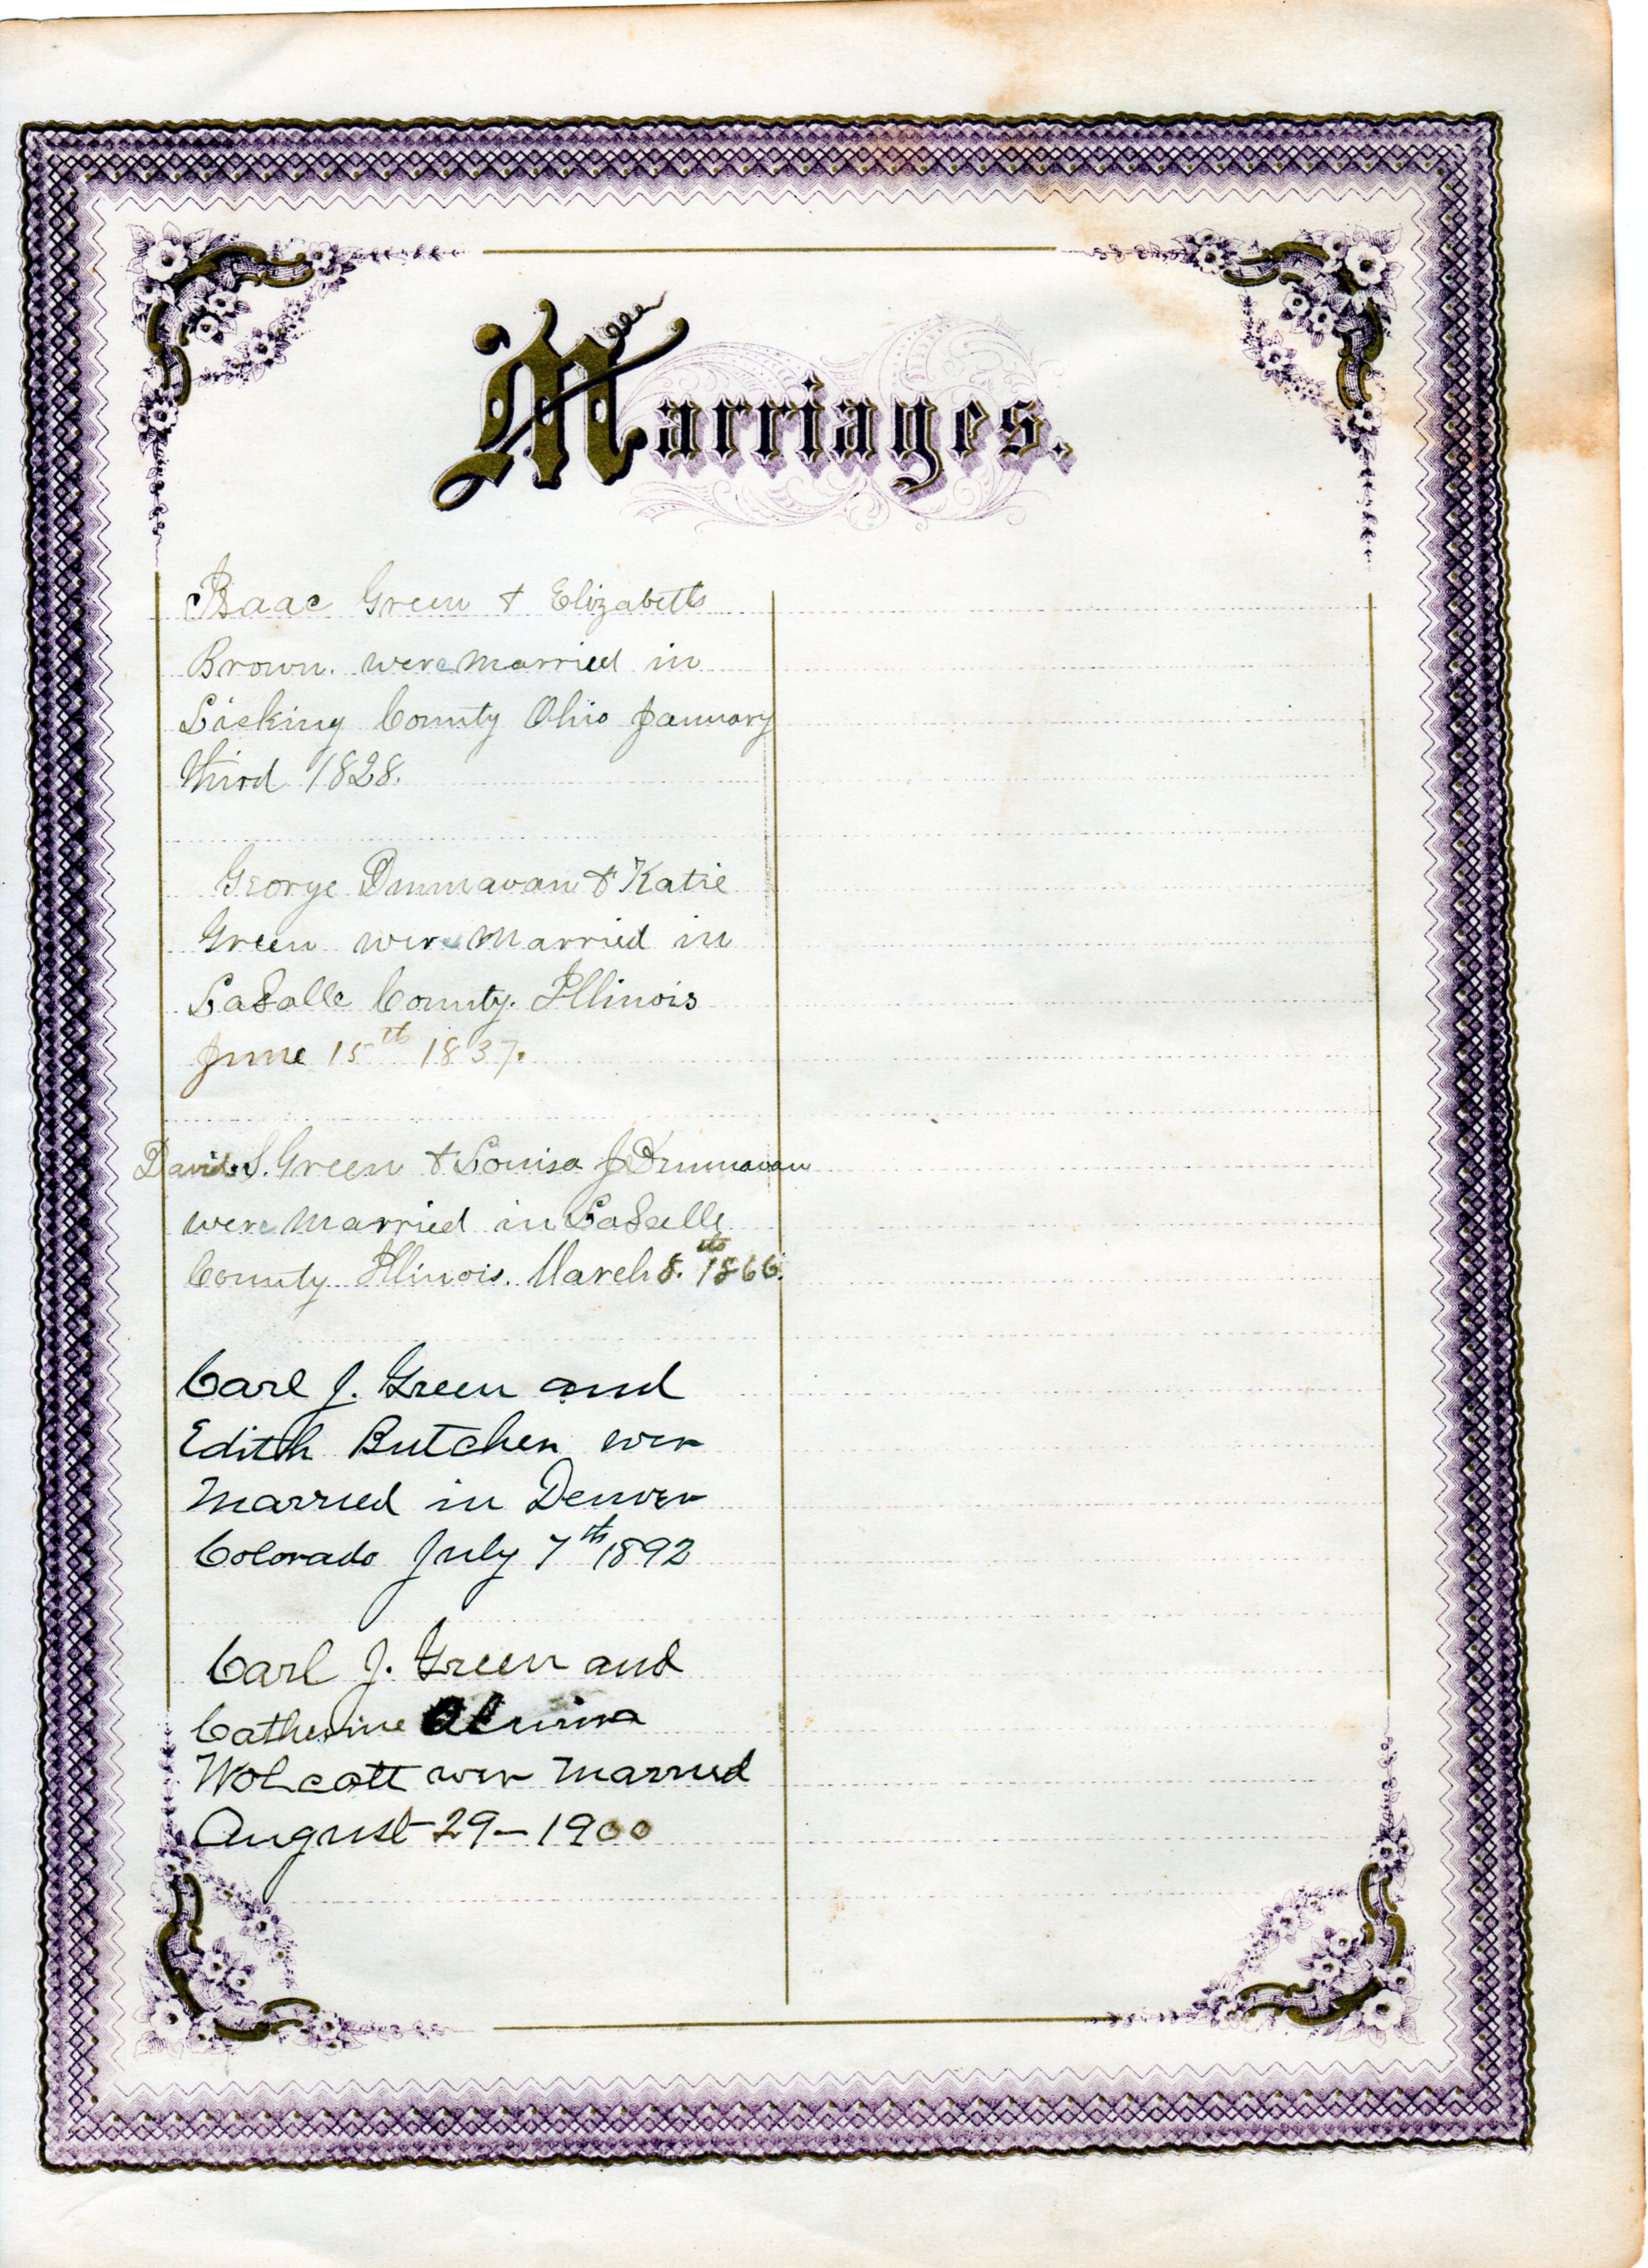 Marriages.
Isaac Green & Elizabeth
Brown. were married in
Licking County Ohio January
third 1828.
George Dunnavan & Katie
Green were married in
LaSalle County. Illinois
June 15th 1837.
David S. Green & Louisa J Dunnavan
were married in LaSalle
County Illinois. March 8th 1866.
Carl J. Green and
Edith Butcher wer
married in Denver
Colorado July 7th 1892
Carl J. Green and
Catherine
Wolcott wer married
August 29 - 1900